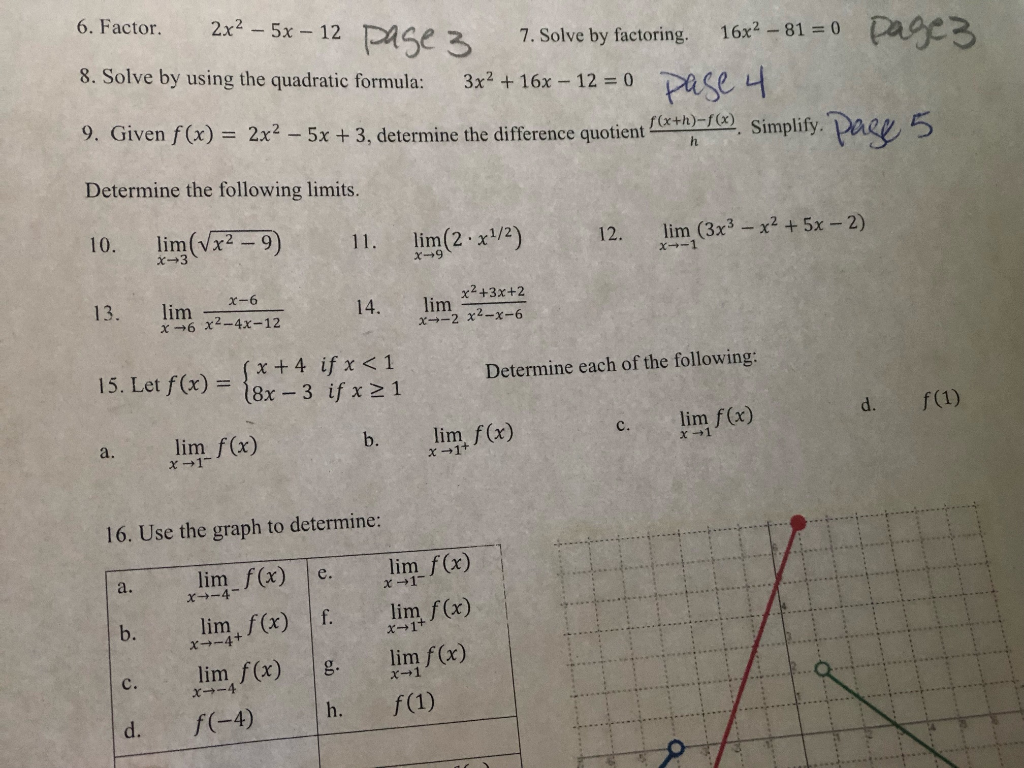 6. Factor. 2x² − 5x − 12 page 3 7. Solve by factoring. 16x² − 81 = 0 page 3
8. Solve by using the quadratic formula: 3x² + 16x − 12 = 0 page 4
9. Given f(x) = 2x² − 5x + 3, determine the difference quotient (f(x+h)−f(x))/h. Simplify. page 5
Determine the following limits.
10. lim x→3 (√(x² − 9)) 11. lim x→9 (2 · x^(1/2)) 12. lim x→−1 (3x³ − x² + 5x − 2)
13. lim x→6 (x−6)/(x²−4x−12) 14. lim x→−2 (x²+3x+2)/(x²−x−6)
15. Let f(x) = { x + 4 if x < 1
8x − 3 if x ≥ 1 Determine each of the following:
a. lim x→1⁻ f(x) b. lim x→1⁺ f(x) c. lim x→1 f(x) d. f(1)
16. Use the graph to determine:
a. lim x→−4⁻ f(x) e. lim x→1⁻ f(x)
b. lim x→−4⁺ f(x) f. lim x→1⁺ f(x)
c. lim x→−4 f(x) g. lim x→1 f(x)
d. f(−4) h. f(1)